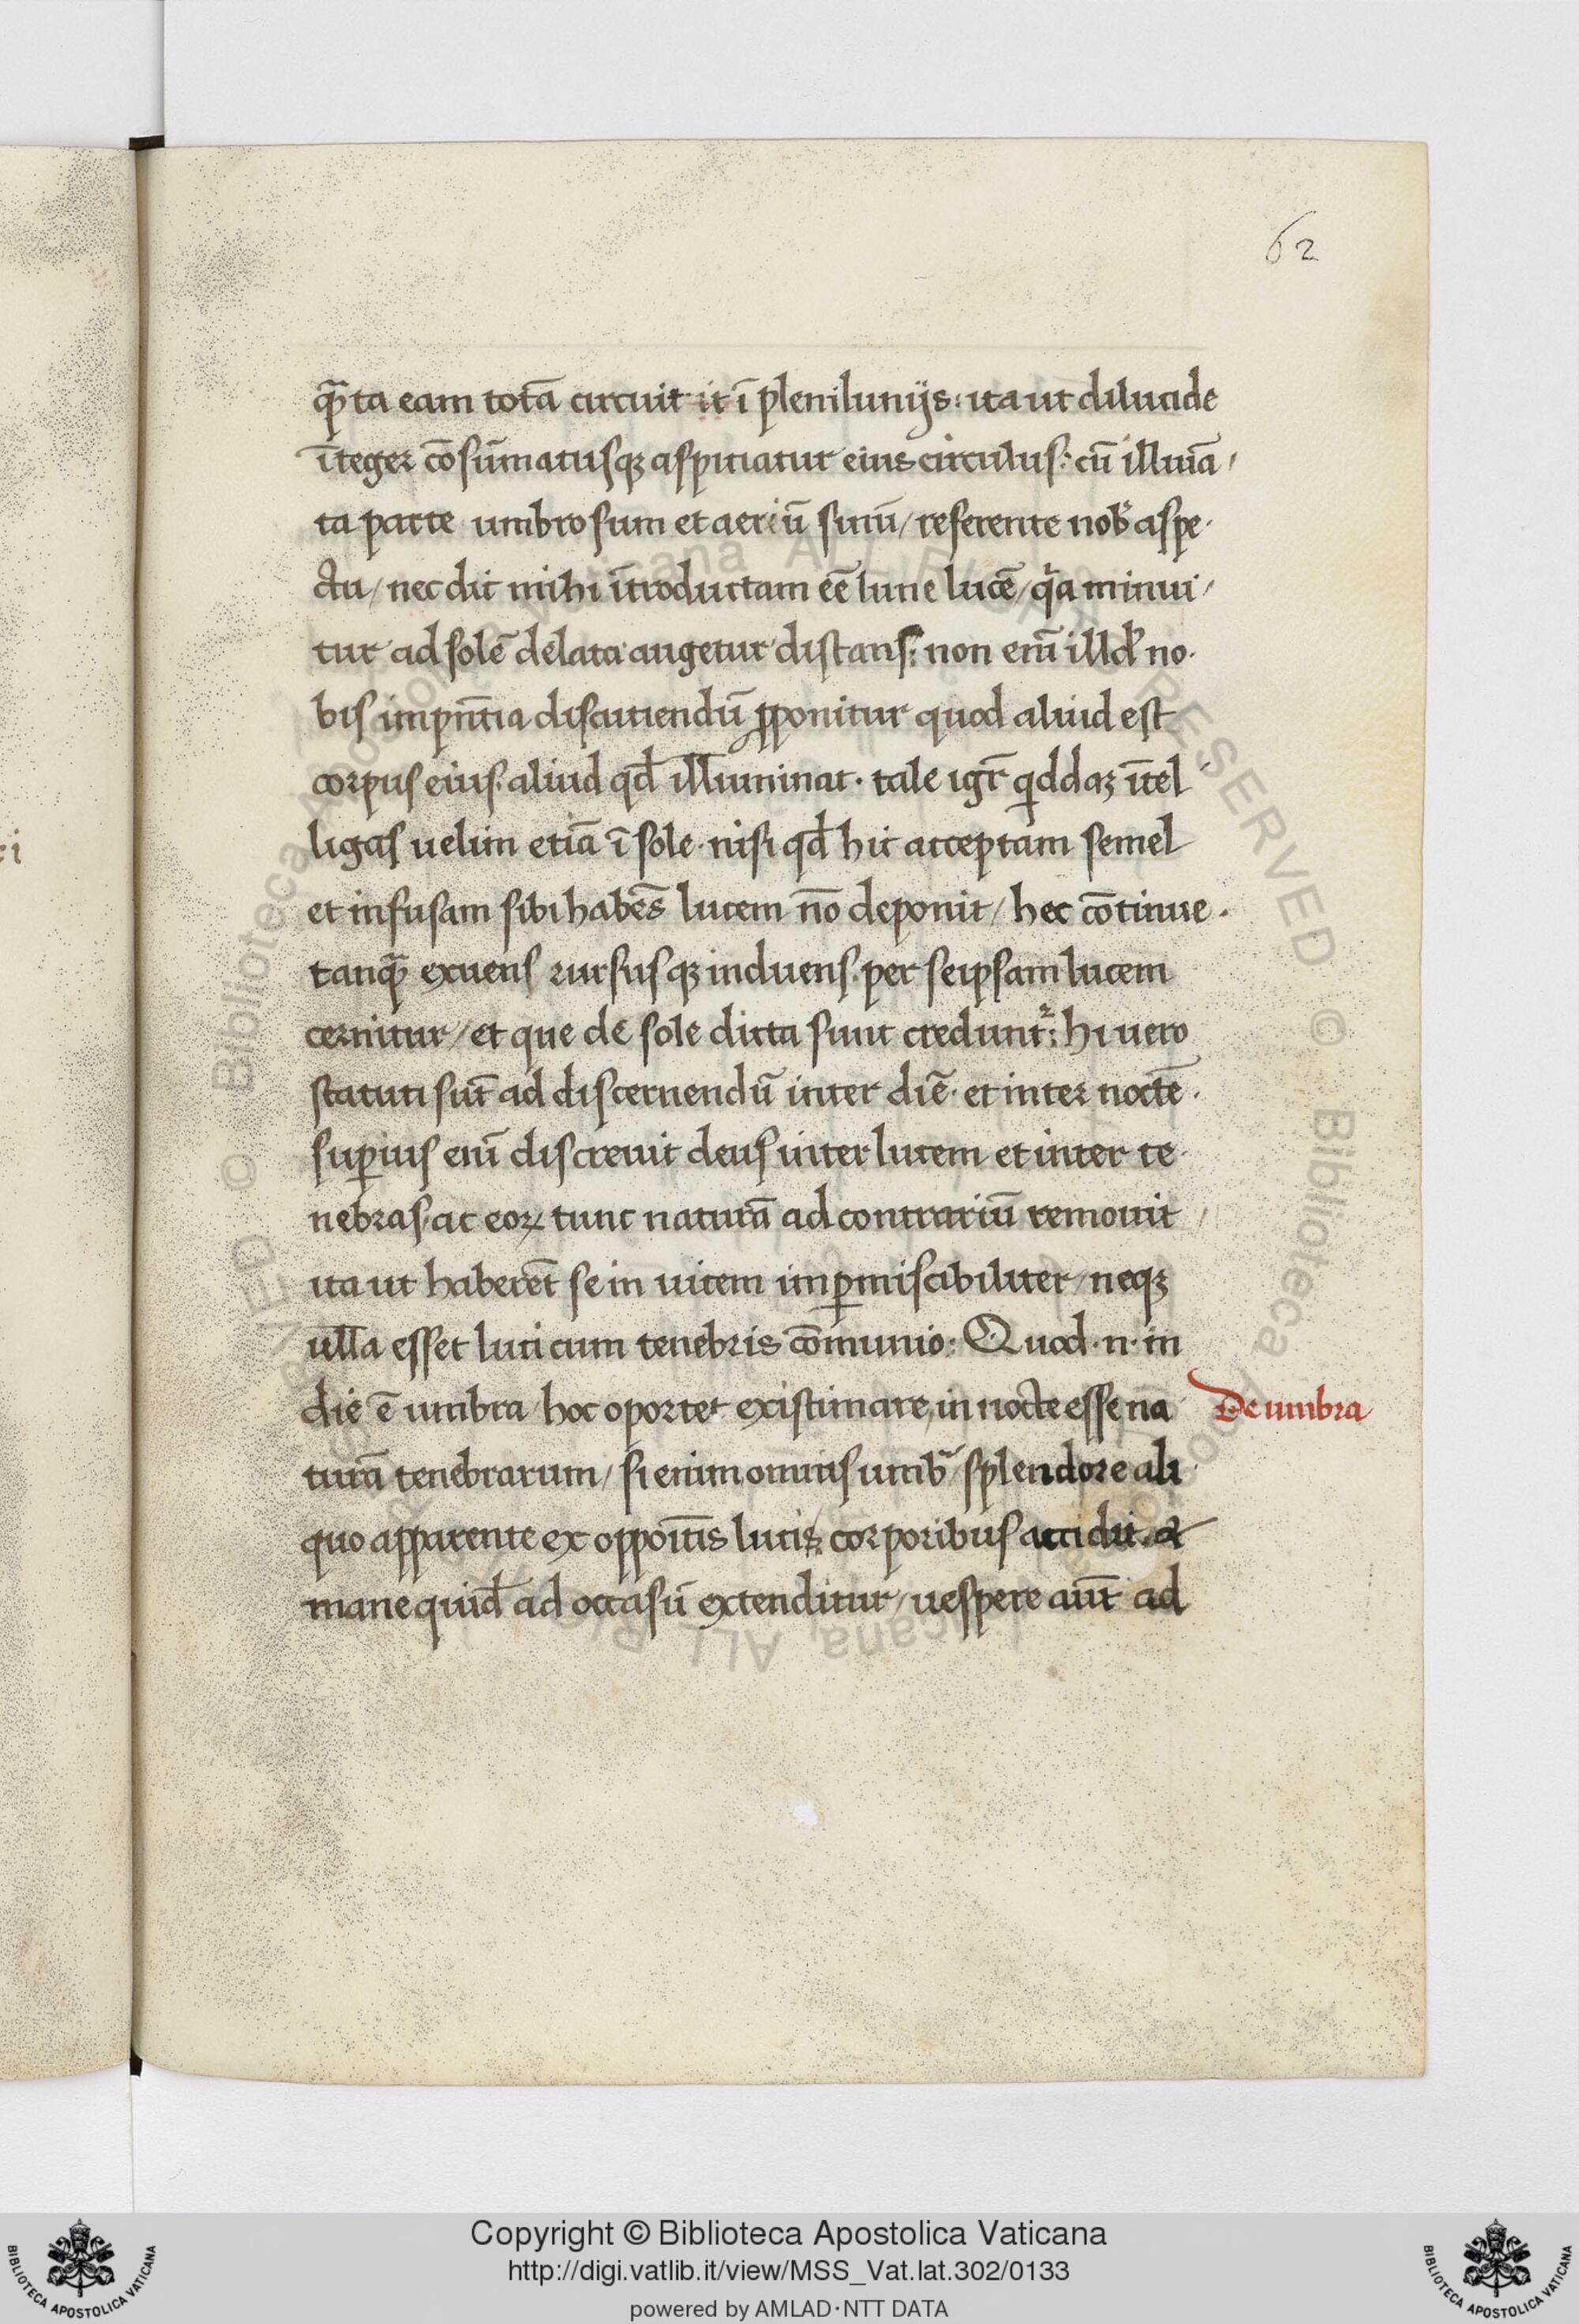 62
qꝫ̃ta eam totã circuit it ĩ plenilunijs: ita ut dilucide
ĩteger cõsũmatusqꝫ aspitiatur eius circulus: cũ illuĩa/
ta parte umbrosum et aeriũ sinũ/ referente nob̃ aspe·
ctu/ nec dic mihi ĩtroductam eẽ lune lucẽ/ q̃a minui/
tur ad solẽ delata augetur distans: non enĩ illd̃ no·
bis impñtia discutiendũ ꝓponitur quod aliud est
corpus eius· aliud qd̃ illuminat· tale igr̃ qiddaꝫ ĩtel
ligas uelim etiã ĩ sole· nisi qd̃ hic acceptam semel
et infusam sibi habẽs lucem nõ deponit/ hec cõtinue·
tanqꝫ̃ exuens rursusqꝫ induens· per seipsam lucem
cernitur/ et que de sole dicta sunt creduntᷣ: hi uero
statuti sũt ad discernendũ inter diẽ· et inter noctẽ·
suꝑius enĩ discreuit deus inter lucem et inter te
nebras· ac eoꝝ tunc naturã ad contrariũ remouit /
ita ut haberẽt se in uicem imꝑmiscibiliter/ neqꝫ
ulla esset luci cum tenebris cõmunio: Quod·n·in
die ẽ umbra/ hoc oportet existimare, in nocte esse na
De umbra
turã tenebrarum/ si enim omnis umb̃/ splendore ali
quo apparente ex oppoitĩs lucis corporibus accidit· et
mane quid̃ ad occasũ extenditur/ uespere aũt ad
ti
Copyright © Biblioteca Apostolica Vaticana
http://digi.vatlib.it/view/MSS_Vat.lat.302/0133
powered by AMLAD·NTT DATA
BIBLIOTECA APOSTOLICA VATICANA
BIBLIOTECA APOSTOLICA VATICANA